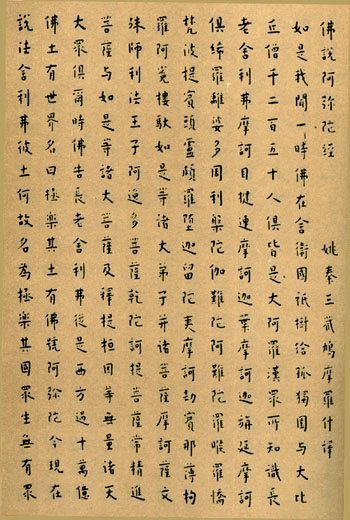 佛說阿弥陀經 姚秦三藏鳩摩羅什譯
如是我聞一時佛在舍衛國祇樹給孤獨園与大比
丘僧千二百五十人俱皆是大阿羅漢眾所知識長
老舍利弗摩訶目揵連摩訶迦葉摩訶迦旃延摩訶
俱絺羅離婆多周利槃陀伽難陀阿難陀羅睺羅憍
梵波提賓頭盧頗羅墮迦留陀夷摩訶劫賓那薄拘
羅阿㝹樓馱如是等諸大弟子并諸菩薩摩訶薩文
殊師利法王子阿逸多菩薩乾陀訶提菩薩常精進
菩薩与如是等諸大菩薩及釋提桓因等無量諸天
大眾俱爾時佛告長老舍利弗從是西方過十萬億
佛土有世界名曰極樂其土有佛號阿弥陀今現在
說法舍利弗彼土何故名為極樂其國眾生無有眾